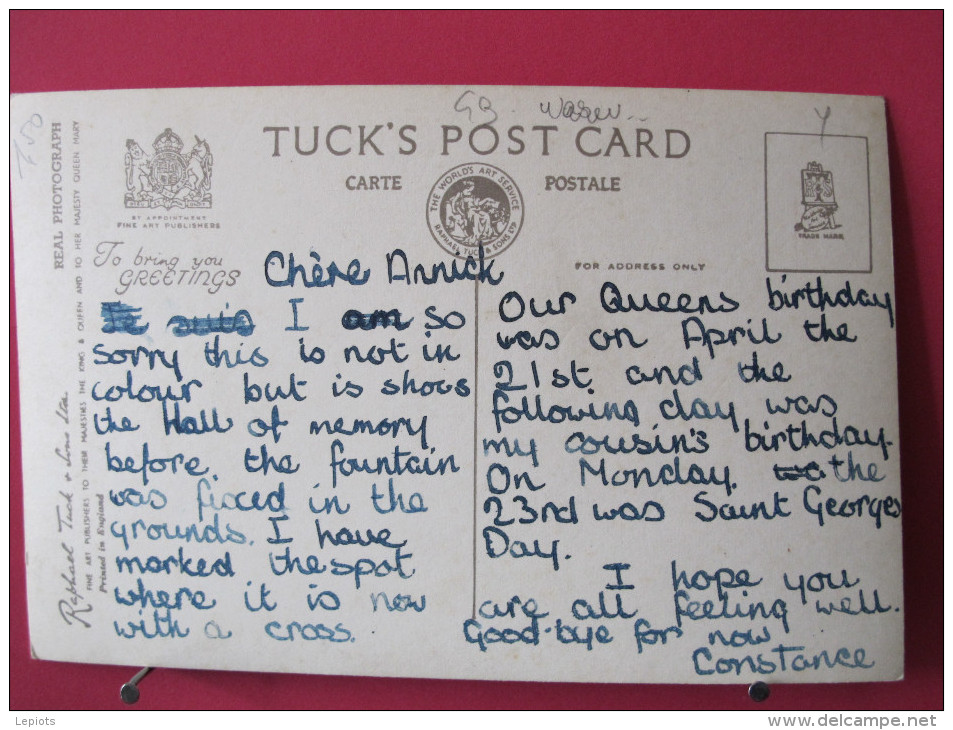 GB.
7.50
TUCK'S POST CARD
CARTE POSTALE
THE WORLD'S ART SERVICE
RAPHAEL TUCK & SONS LTD
BY APPOINTMENT
FINE ART PUBLISHERS
TRADE MARK
FOR ADDRESS ONLY
To bring you
GREETINGS
REAL PHOTOGRAPH
Raphael Tuck & Sons Ltd
FINE ART PUBLISHERS TO THEIR MAJESTIES THE KING & QUEEN AND TO HER MAJESTY QUEEN MARY
Printed in England
Chère Annick
Je suis I am so
sorry this is not in
colour but is shows
the Hall of memory
before. the fountain
was ficced in the
grounds. I have
marked the spot
where it is now
with a cross.
Our Queens birthday
was on April the
21st. and the
following day was
my cousin's birthday.
On Monday. the
23rd was Saint Georges
Day.
I hope you
are all feeling well.
Good-bye for now
Constance
Lepiots
www.delcampe.net